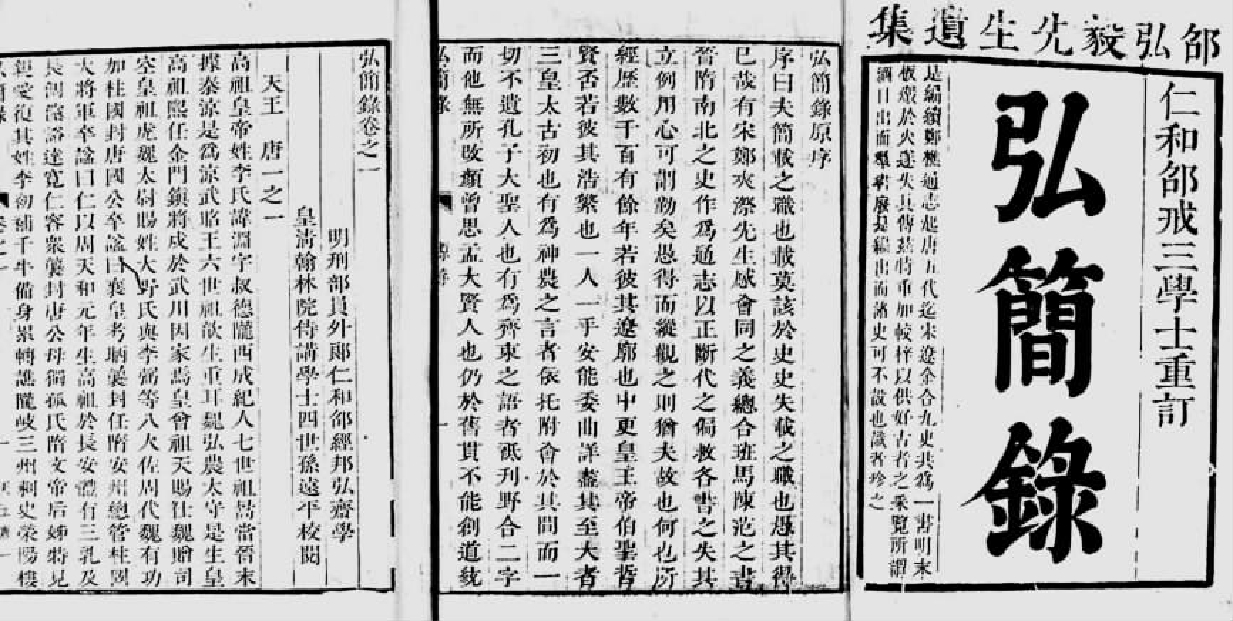 邰弘毅先生遺集
仁和邰戒三學士重訂
弘簡錄
是編續鄭樵通志起唐五代迄宋遼金合九史共爲一書明末
板燬於火遂失其傳茲特重加較梓以供好古者之采覽所謂
酒日出而
是編出而諸史可不設也識者珍之
弘簡錄原序
序曰夫簡載之職也載莫該於史史失載之職也愚其得
已哉有宋鄭夾漈先生感會同之義總合班馬陳范之書
晉隋南北之史作爲通志以正斷代之偏救各書之失其
立例用心可謂勤矣愚得而縱觀之則猶夫故也何也所
經歷數千百有餘年若彼其遼廓也中更皇王帝伯聖哲
賢否若彼其浩繁也一人一乎安能委曲詳盡其至大者
三皇太古初也有爲神農之言者依托附會於其間而一
切不遺孔子大聖人也有爲齊東之語者砥刊野合二字
而他無所改頗曾思孟大賢人也仍於舊貫不能創道統
弘簡錄
弘簡錄卷之一
明刑部員外郎仁和邰經邦弘齋學
皇清翰林院侍講學士四世孫遠平校閱
天王 唐一之一
高祖皇帝姓李氏諱淵字叔德隴西成紀人七世祖暠當晉末
據秦涼是爲涼武昭王六世祖歆生重耳魏弘農太守是生皇
高祖熙任金門鎮將戍於武川因家焉皇曾祖天賜仕魏贈司
空皇祖虎魏太尉賜姓大野氏與李弼等八人佐周代魏有功
加柱國封唐國公卒諡曰襄皇考昞襲封任隋安州總管柱國
大將軍卒諡曰仁以周天和元年生高祖於長安體有三乳及
長倜儻豁達寬仁容衆襲封唐公母獨孤氏隋文帝后姊特見
親愛復其姓李初補千牛備身累轉譙隴岐三州刺史滎陽樓